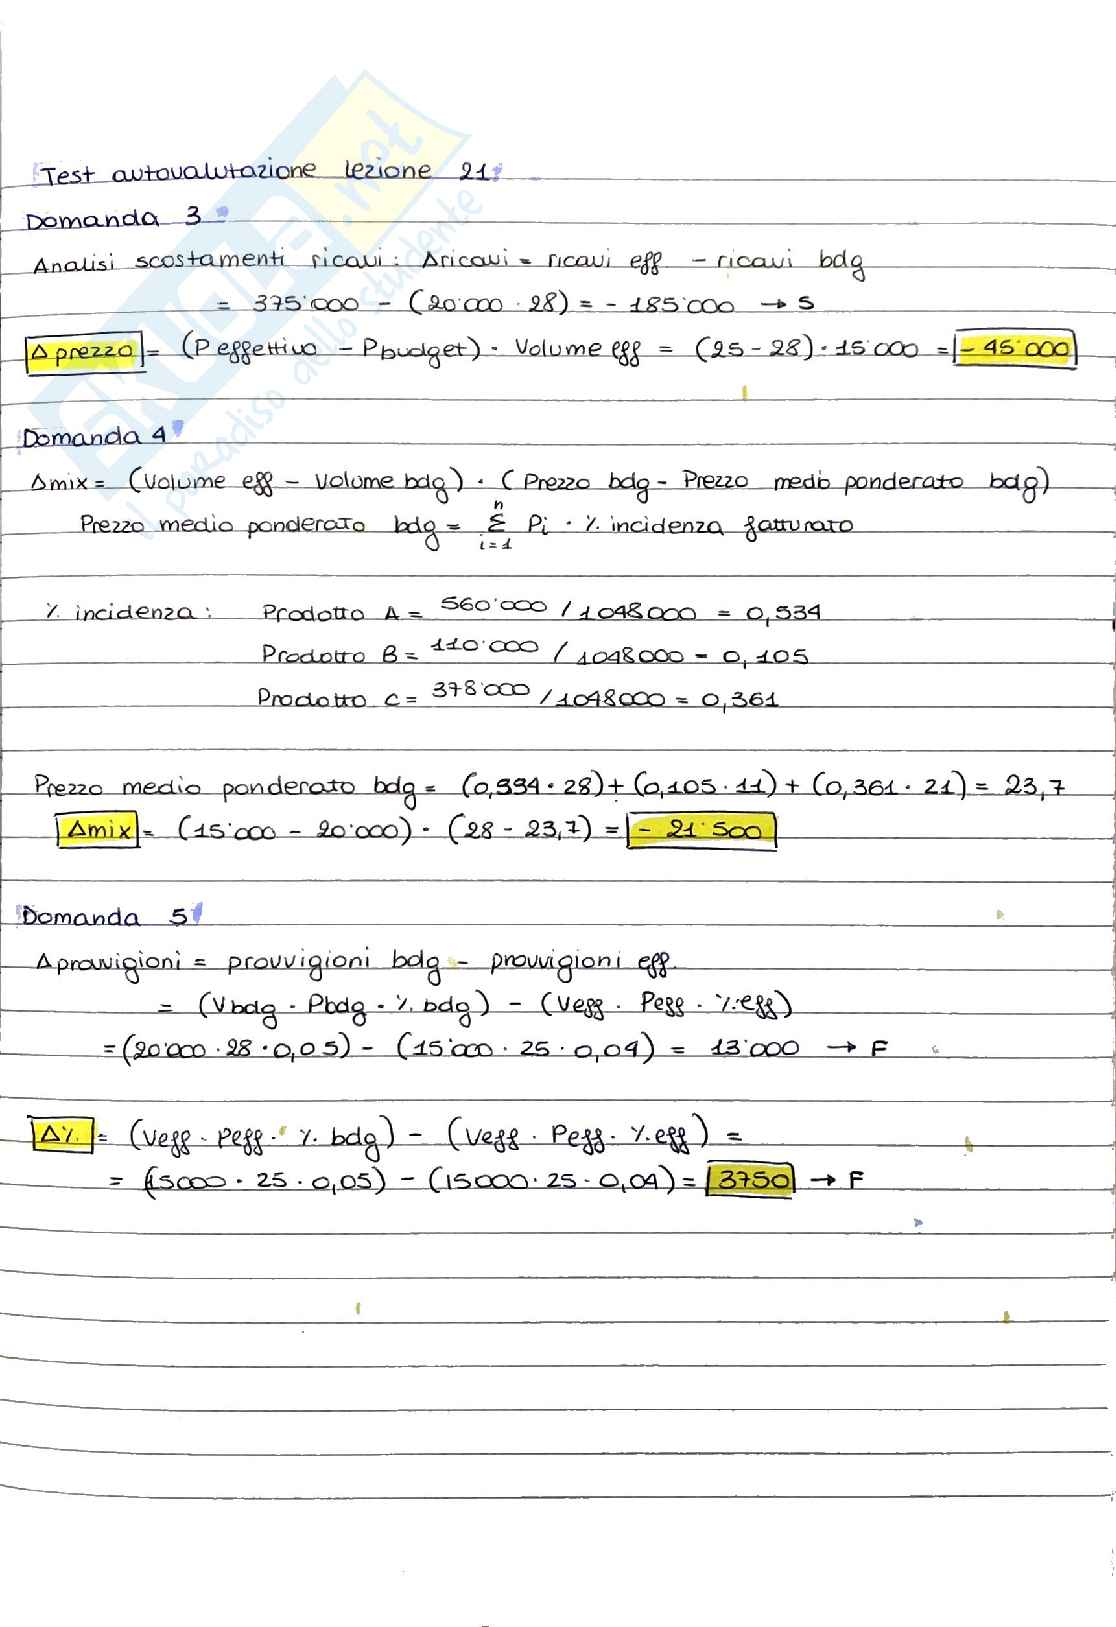 Test autovalutazione lezione 21
Domanda 3
Analisi scostamenti ricavi: Δricavi = ricavi eff - ricavi bdg
= 375'000 - (20'000 · 28) = - 185'000 → S
Δ prezzo = (P effettivo - Pbudget) · Volume eff = (25 - 28) · 15'000 = - 45'000
Domanda 4
Δmix = (Volume eff - Volume bdg) · (Prezzo bdg - Prezzo medio ponderato bdg)
Prezzo medio ponderato bdg = n Σ i=1 Pi · % incidenza fatturato
% incidenza: Prodotto A = 560'000 / 1048000 = 0,534
Prodotto B = 110'000 / 1048000 = 0,105
Prodotto C = 378'000 / 1048000 = 0,361
Prezzo medio ponderato bdg = (0,534 · 28) + (0,105 · 11) + (0,361 · 21) = 23,7
Δmix = (15'000 - 20'000) · (28 - 23,7) = - 21'500
Domanda 5
Δprovvigioni = provvigioni bdg - provvigioni eff.
= (Vbdg · Pbdg · % bdg) - (Veff · Peff · % eff)
= (20'000 · 28 · 0,05) - (15'000 · 25 · 0,04) = 13'000 → F
Δ% = (Veff · Peff · % bdg) - (Veff · Peff · % eff) =
= (15000 · 25 · 0,05) - (15000 · 25 · 0,04) = 3750 → F
SKUOLA.net
il paradiso dello studente